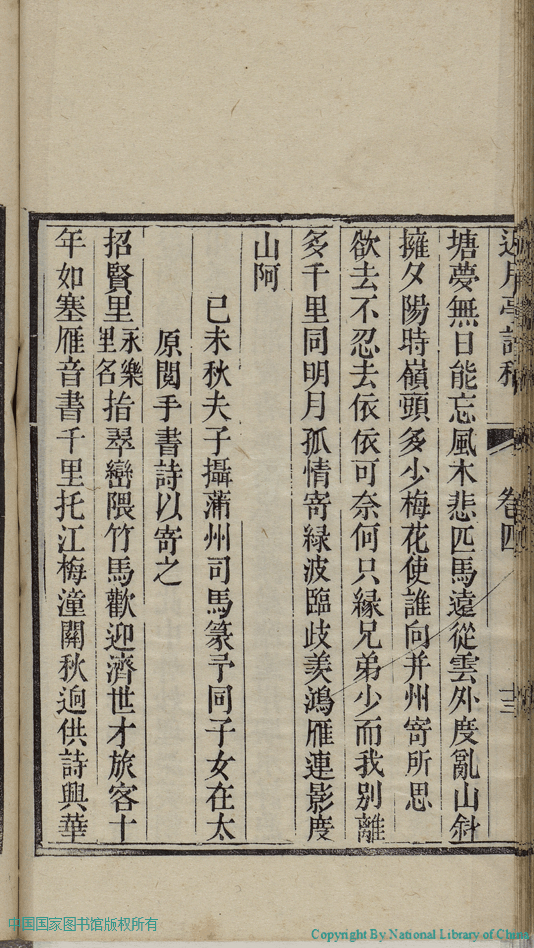 卷四
十三
塘夢無日能忘風木悲匹馬遠從雲外度亂山斜
擁夕陽時嶺頭多少梅花使誰向并州寄所思
欲去不忍去依依可奈何只緣兄弟少而我別離
多千里同明月孤情寄綠波臨歧羨鴻雁連影度
山阿
己未秋夫子攝蒲州司馬篆予同子女在太
原閱手書詩以寄之
招賢里永樂里名指翠巒隈竹馬歡迎濟世才旅客十
年如塞雁音書千里托江梅潼關秋逈供詩興華
中国国家图书馆版权所有
Copyright By National Library of China